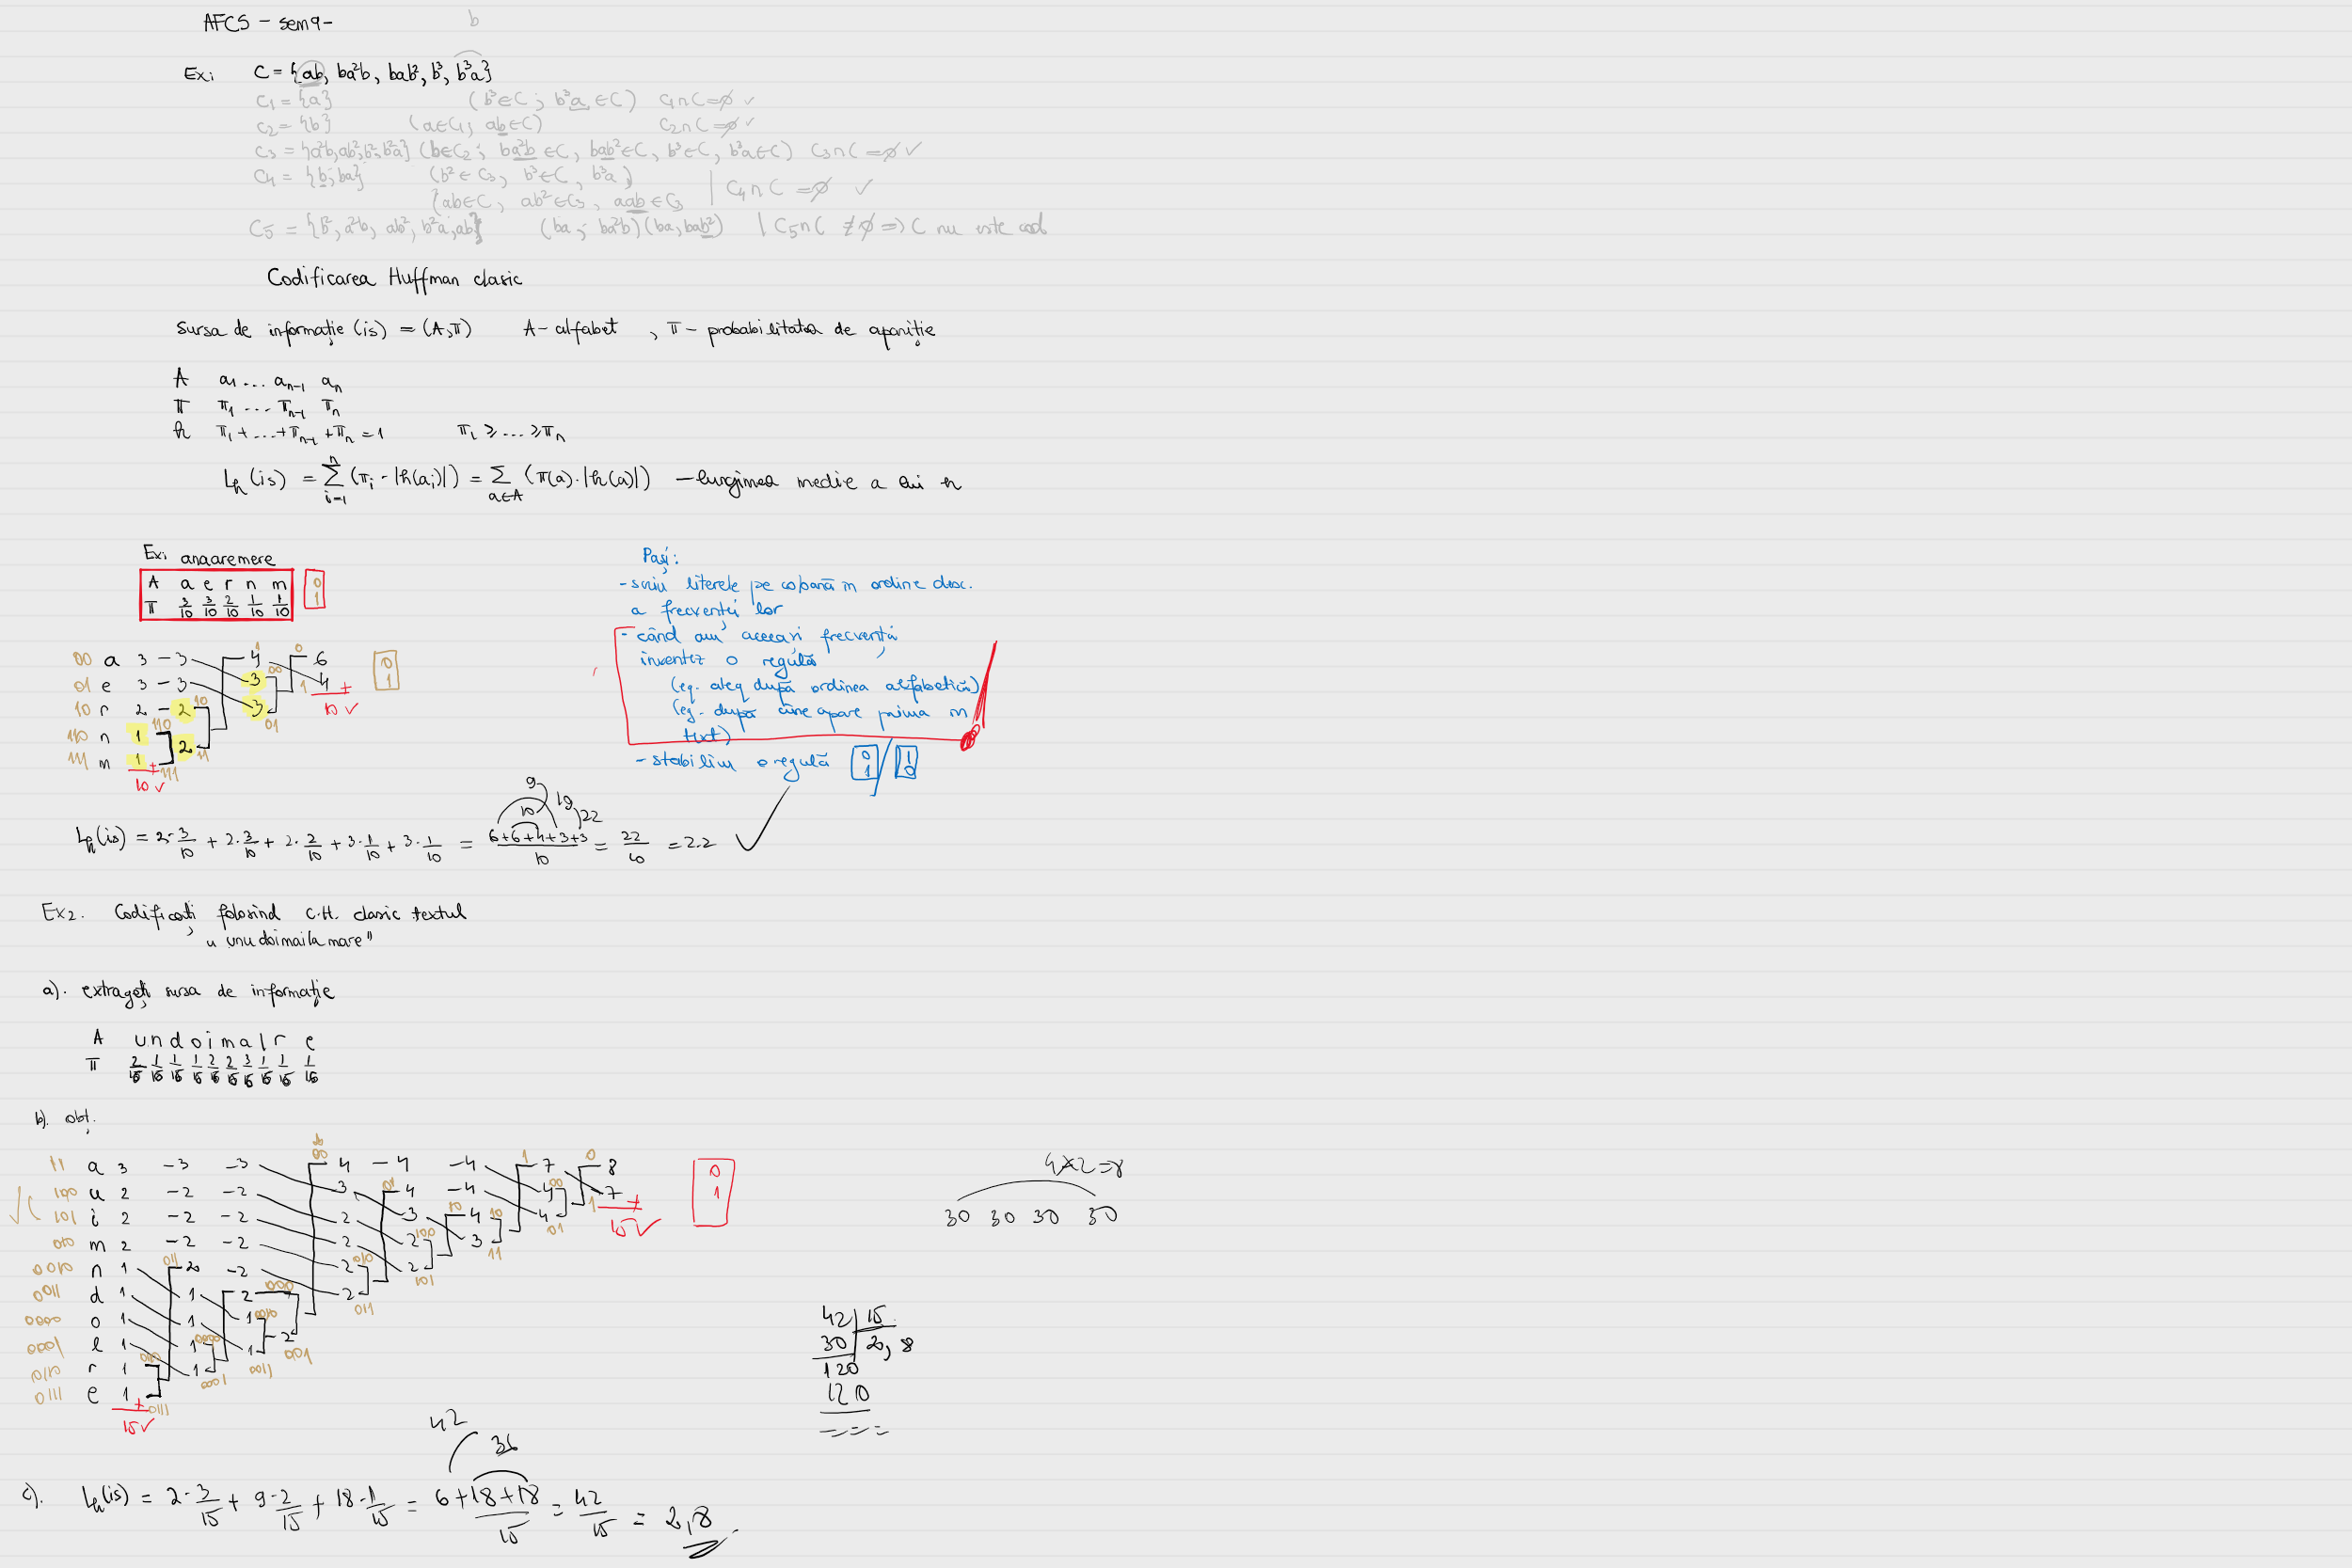 AFCS - sem9-
b
Ex: C = {ab, ba²b, bab², b³, b³a}
C₁ = {a} (b³∈C ; b³a ∈C) C₁∩C=∅ ✓
C₂ = {b} (a∈C₁; ab∈C) C₂∩C=∅ ✓
C₃ = {a²b, ab², b², b²a} (b∈C₂ ; ba²b ∈C, bab²∈C, b³∈C, b³a∈C) C₃∩C=∅ ✓
C₄ = {b, ba} (b²∈C₃, b³∈C, b³a)
{ab∈C, ab²∈C₃, aab∈C₃ | C₄∩C=∅ ✓
C₅ = {b², a²b, ab², b²a, ab} (ba ; ba²b)(ba, bab²) | C₅∩C ≠∅ => C nu este cod
Codificarea Huffman clasic
Sursa de informație (is) = (A,π) A - alfabet , π - probabilitatea de apariție
A a₁ ... aₙ₋₁ aₙ
π π₁ ... πₙ₋₁ πₙ
h π₁+...+πₙ₋₁+πₙ=1 π₁ ≥ ... ≥ πₙ
Lₕ(is) = Σ i=1 n (πᵢ · |h(aᵢ)|) = Σ a∈A (π(a)·|h(a)|) - lungimea medie a lui h
Ex: anaaremere
A a e r n m 0
π 3/10 3/10 2/10 1/10 1/10 1
00 a 3 - 3 4 1 6 0
01 e 3 - 3 3 00 4 1
10 r 2 - 2 10 3 01 10 ✓
110 n 1 110 2 11
111 m 1 111
10 ✓
0
1
Pași:
- scriu literele pe coloană în ordine desc.
a frecvenței lor
- când am aceeași frecvență
inventez o regulă
(eg. aleg după ordinea alfabetică)
(eg. după cine apare prima în
text)
- stabilim o regulă 0 1 / 1 0
9 10 19 22
Lₕ(is) = 2·3/10 + 2·3/10 + 2·2/10 + 3·1/10 + 3·1/10 = 6+6+4+3+3/10 = 22/10 = 2.2
Ex2. Codificați folosind C.H. clasic textul
"unudoimailamare"
a). extrageți sursa de informație
A u n d o i m a l r e
π 2/15 1/15 1/15 1/15 2/15 2/15 3/15 1/15 1/15 1/15
b). obț.
11 a 3 - 3 - 3 4 00 - 4 - 4 7 1 8 0
100 u 2 - 2 - 2 3 4 01 - 4 4 00 7 1
101 i 2 - 2 - 2 2 3 4 10 4 01 15 ✓
010 m 2 - 2 - 2 2 2 100 3 11
0010 n 1 2 011 - 2 2 010 2 101
0011 d 1 1 2 000 2 011
0000 o 1 1 1 0010 2 001
0001 l 1 1 0000 1 0011
0110 r 1 1 0001
0111 e 1 0111
15 ✓
0
1
4×2=8
30 30 30 30
42 | 15
30 2,8
120
120
====
42
36
c). Lₕ(is) = 2·3/15 + 9·2/15 + 18·1/15 = 6+18+18/15 = 42/15 = 2,8